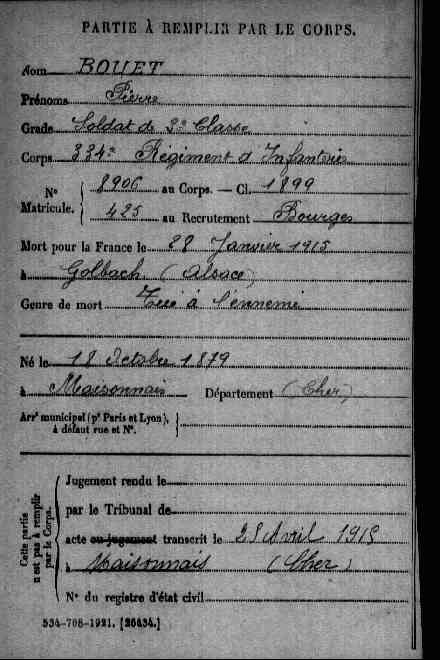 PARTIE À REMPLIR PAR LE CORPS.
Nom BOUET
Prénoms Pierre
Grade Soldat de 2e Classe
Corps 334e Régiment d'Infanterie
N° Matricule. { 8906 au Corps. — Cl. 1899
425 au Recrutement Bourges
Mort pour la France le 28 Janvier 1915
à Golbach (Alsace)
Genre de mort Tué à l'ennemi
Né le 18 Octobre 1879
à Maisonnais Département (Cher)
Arrt municipal (pr Paris et Lyon), à défaut rue et N°. }
Cette partie n'est pas à remplir par le Corps.
Jugement rendu le
par le Tribunal de
acte ou jugement transcrit le 28 Avril 1915
à Maisonnais (Cher)
N° du registre d'état civil
534-708-1921. [26434.]